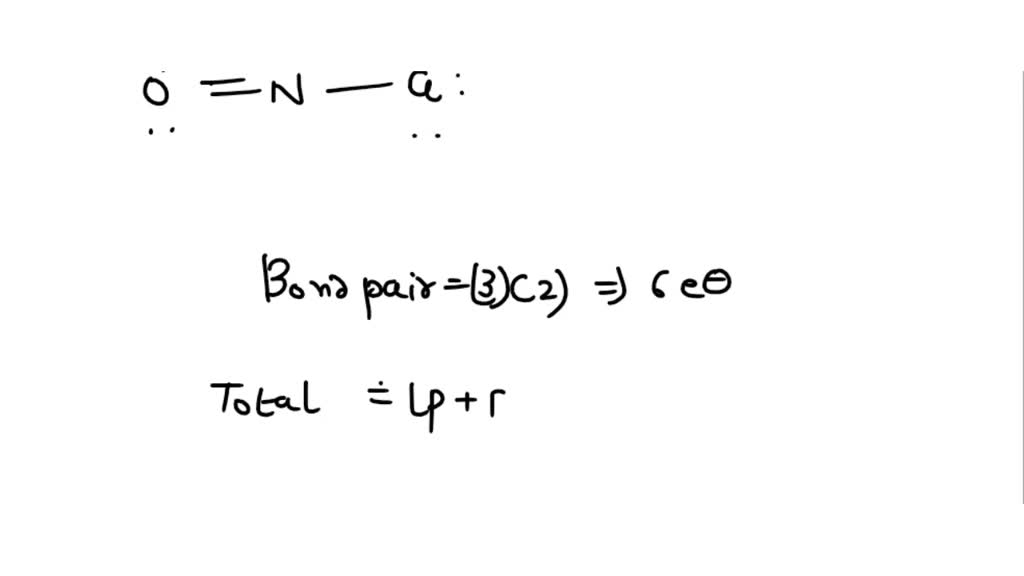 O = N — Cl :
Bond pair = (3)(2) ⇒ 6 e⊖
Total = lp + r